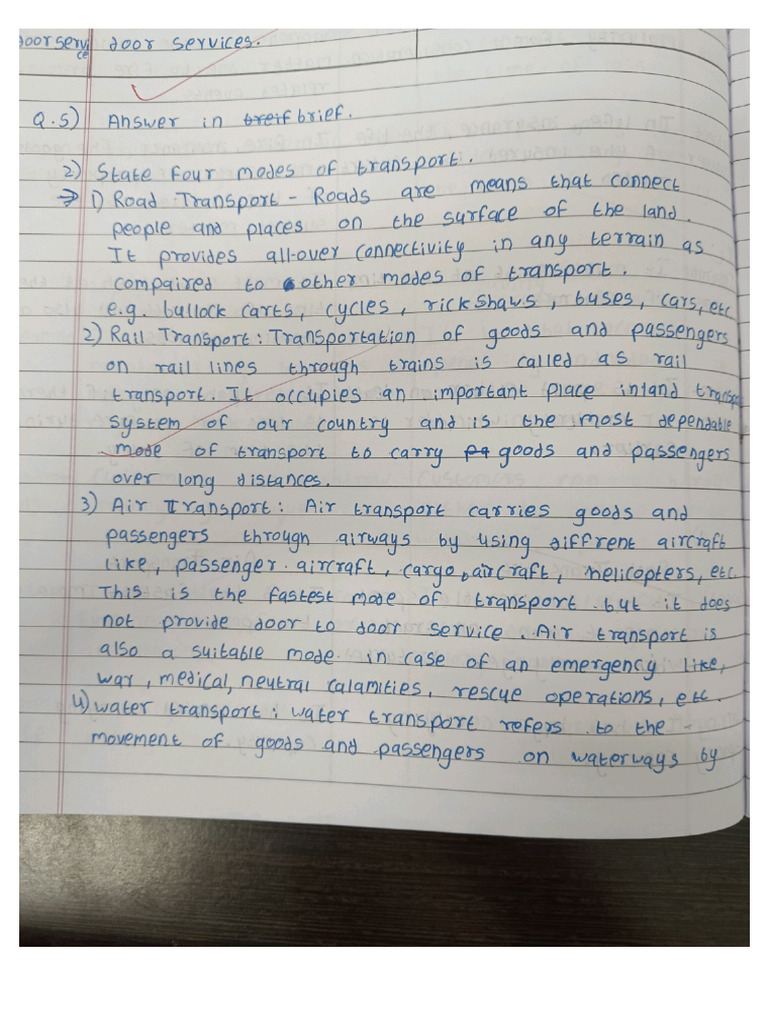 doorservice door services.
Q.5) Answer in breif brief.
2) State four modes of transport.
→ 1) Road Transport - Roads are means that connect
people and places on the surface of the land.
It provides all-over connectivity in any terrain as
compaired to other modes of transport.
e.g. bullock carts, cycles, rickshaws, buses, cars, etc
2) Rail Transport: Transportation of goods and passengers
on rail lines through trains is called as rail
transport. It occupies an important place inland transpo
system of our country and is the most dependable
mode of transport to carry goods and passengers
over long distances.
3) Air Transport: Air transport carries goods and
passengers through airways by using diffrent aircraft
like, passenger aircraft, cargo, aircraft, helicopters, etc.
This is the fastest mode of transport but it does
not provide door to door service. Air transport is
also a suitable mode in case of an emergency like,
war, medical, neutral calamities, rescue operations, etc.
4) water transport: water transport refers to the
movement of goods and passengers on waterways by